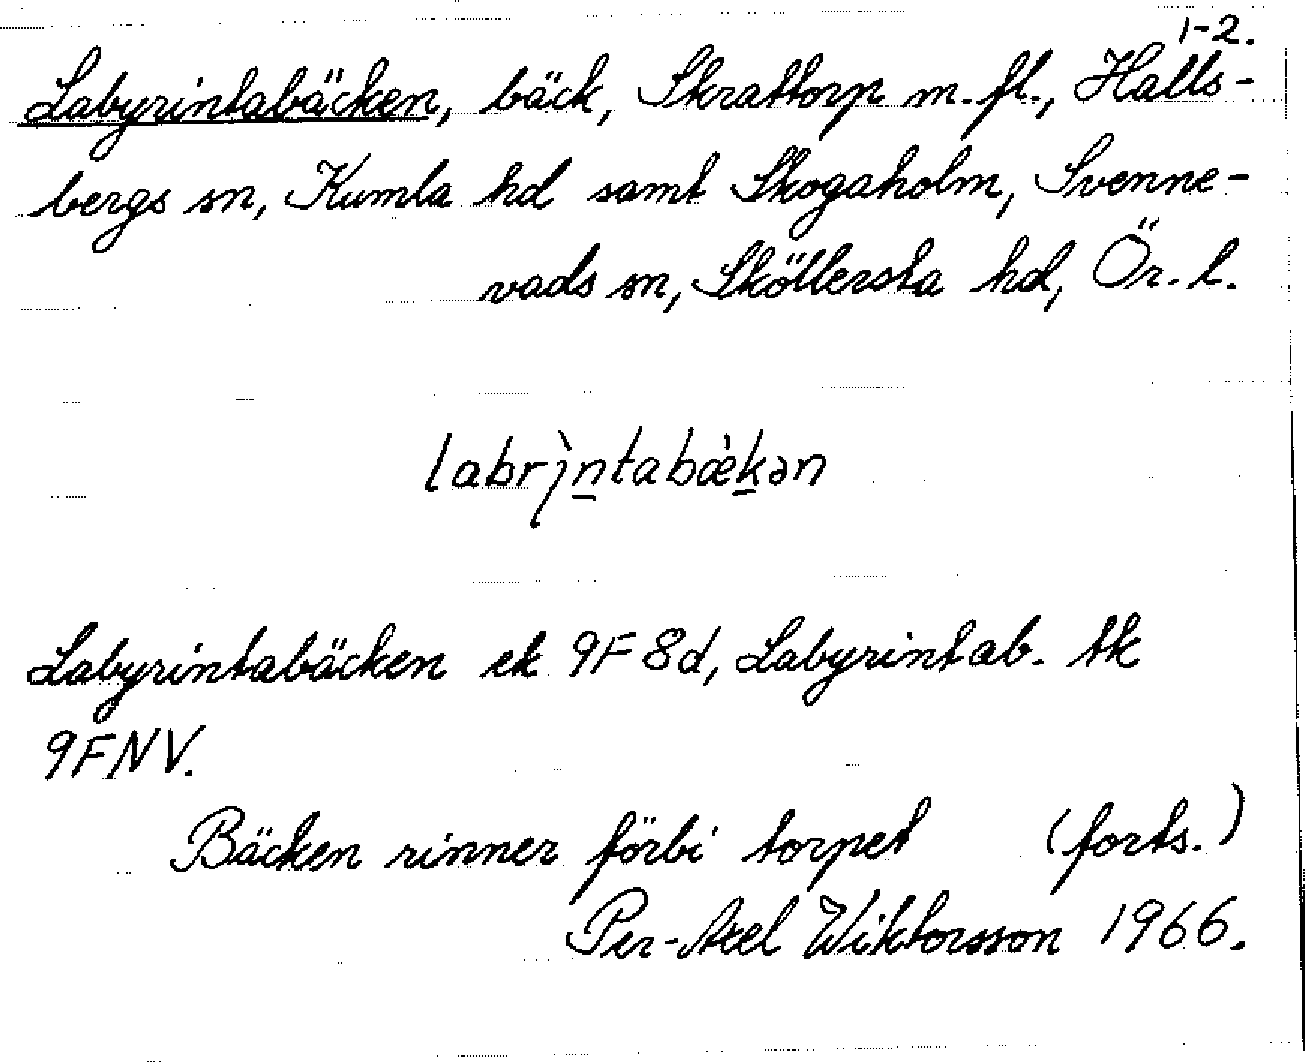 1-2.
Labyrintabäcken, bäck, Skrattorp m.fl., Halls-
bergs sn, Kumla hd samt Skogaholm, Svenne-
vads sn, Sköllersta hd, Ör. l.
labrìntabæ̀kən
Labyrintabäcken ek 9F 8d, Labyrintab. tk
9FNV.
Bäcken rinner förbi torpet (forts.)
Per-Axel Wiktorsson 1966.